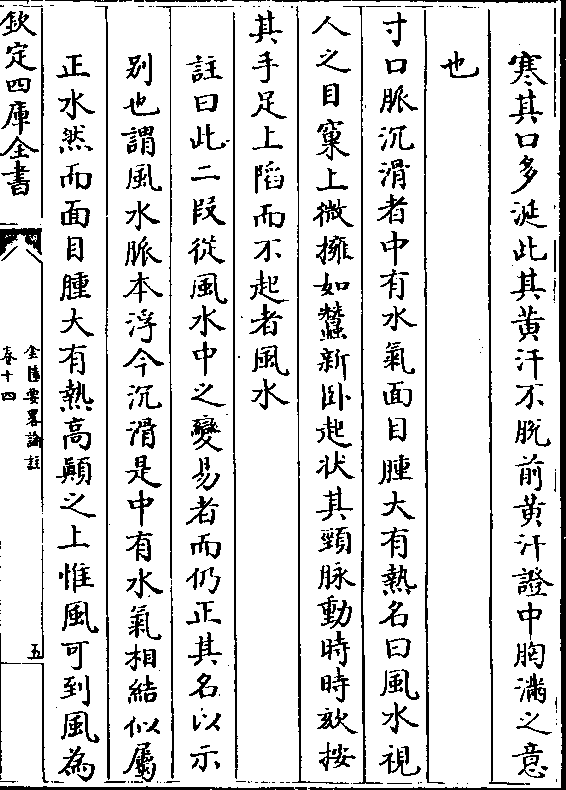 寒其口多涎此其黄汗不脱前黄汗證中胸滿之意
也
寸口脈沉滑者中有水氣面目腫大有熱名曰風水視
人之目窠上微擁如蠶新卧起状其頸脉動時時欬按
其手足上陷而不起者風水
註曰此二段從風水中之變易者而仍正其名以示
别也謂風水脈本浮今沉滑是中有水氣相結似屬
正水然而面目腫大有熱高顛之上惟風可到風為
欽定四庫全書
金匱要畧論註
卷十四
五